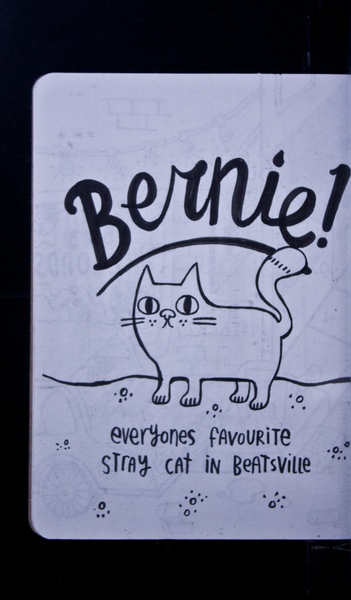 Bernie!
everyones favourite
stray cat in Beatsville